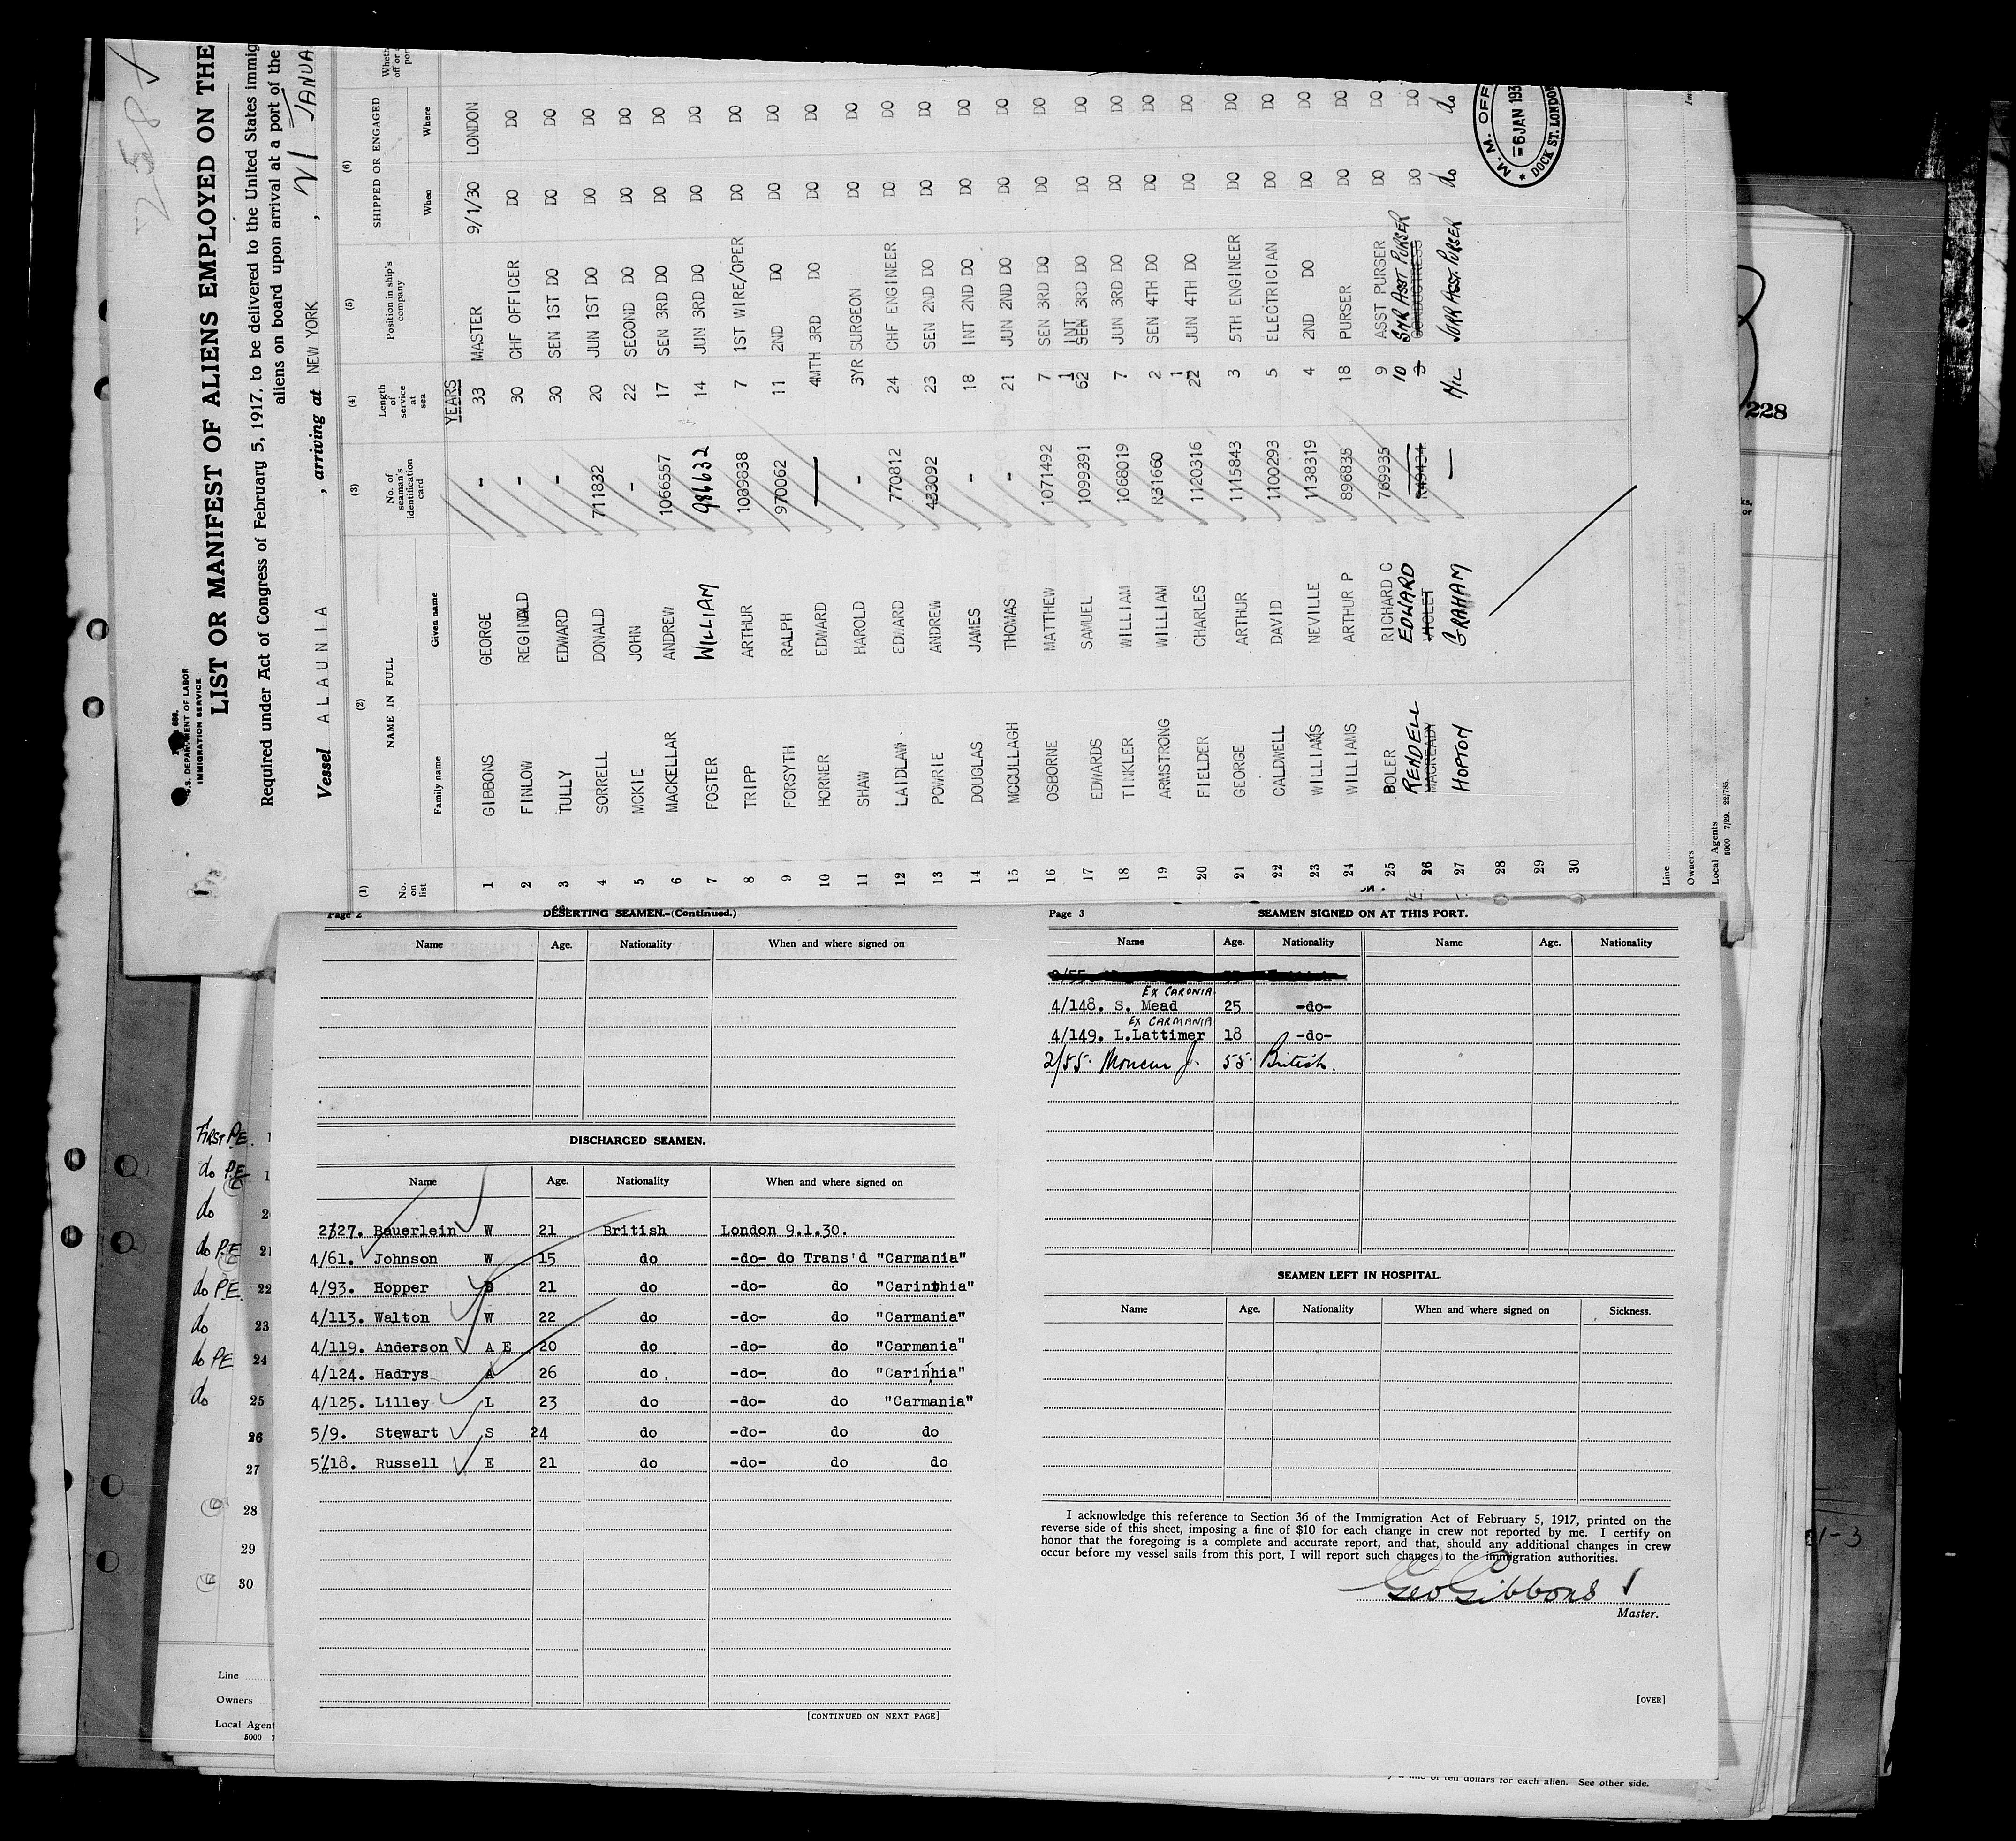 258
U.S. DEPARTMENT OF LABOR
IMMIGRATION SERVICE
LIST OR MANIFEST OF ALIENS EMPLOYED ON THE
Required under Act of Congress of February 5, 1917, to be delivered to the United States immig
aliens on board upon arrival at a port of the
Vessel ALAUNIA , arriving at NEW YORK , 21 JANUA
(1) (2) (3) (4) (5) (6)
No. on list NAME IN FULL No. of seaman's identification card Length of service at sea Position in ship's company SHIPPED OR ENGAGED
Family name Given name When Where
YEARS
1 GIBBONS GEORGE - 33 MASTER 9/1/30 LONDON
2 FINLOW REGINALD - 30 CHF OFFICER DO DO
3 TULLY EDWARD - 30 SEN 1ST DO DO DO
4 SORRELL DONALD 711832 20 JUN 1ST DO DO DO
5 MCKIE JOHN - 22 SECOND DO DO DO
6 MACKELLAR ANDREW 1066557 17 SEN 3RD DO DO DO
7 FOSTER WILLIAM 986632 14 JUN 3RD DO DO DO
8 TRIPP ARTHUR 1089838 7 1ST WIRE/OPER DO DO
9 FORSYTH RALPH 970062 11 2ND DO DO DO
10 HORNER EDWARD — 4MTH 3RD DO DO DO
11 SHAW HAROLD - 3YR SURGEON DO DO
12 LAIDLAW EDWARD 770812 24 CHF ENGINEER DO DO
13 POWRIE ANDREW 433092 23 SEN 2ND DO DO DO
14 DOUGLAS JAMES - 18 INT 2ND DO DO DO
15 MCCULLAGH THOMAS - 21 JUN 2ND DO DO DO
16 OSBORNE MATTHEW 1071492 7 SEN 3RD DO DO DO
17 EDWARDS SAMUEL 1099391 6½ INT 3RD DO DO DO
18 TINKLER WILLIAM 1068019 7 JUN 3RD DO DO DO
19 ARMSTRONG WILLIAM R31660 2 SEN 4TH DO DO DO
20 FIELDER CHARLES 1120316 2½ JUN 4TH DO DO DO
21 GEORGE ARTHUR 1115843 3 5TH ENGINEER DO DO
22 CALDWELL DAVID 1100293 5 ELECTRICIAN DO DO
23 WILLIAMS NEVILLE 1138319 4 2ND DO DO DO
24 WILLIAMS ARTHUR P 896835 18 PURSER DO DO
25 BOLER RICHARD C 769935 9 ASST PURSER DO DO
26 RENDELL EDWARD 10 SNR ASST PURSER DO DO
MACREADY VIOLET R49434 3
27 HOPTON GRAHAM — NIL JUNR ASST. PURSER do do
28
29
30
M. M. OFF
6 JAN 193
DOCK ST. LONDON
Line
Owners
Local Agents
5000 7/29. 22/785.
228
Page 2 DESERTING SEAMEN.-(Continued.)
Name Age. Nationality When and where signed on
DISCHARGED SEAMEN.
Name Age. Nationality When and where signed on
2/27. Bauerlein W 21 British London 9.1.30.
4/61. Johnson W 15 do -do- do Trans'd "Carmania"
4/93. Hopper 21 do -do- do "Carinthia"
4/113. Walton W 22 do -do- do "Carmania"
4/119. Anderson A E 20 do -do- do "Carmania"
4/124. Hadrys A 26 do -do- do "Carinthia"
4/125. Lilley L 23 do -do- do "Carmania"
5/9. Stewart S 24 do -do- do do
5/18. Russell E 21 do -do- do do
[CONTINUED ON NEXT PAGE]
Page 3 SEAMEN SIGNED ON AT THIS PORT.
Name Age. Nationality Name Age. Nationality
EX CARONIA
4/148. S. Mead 25 -do-
EX CARMANIA
4/149. L.Lattimer 18 -do-
2/55. Moncur J. 55. British.
SEAMEN LEFT IN HOSPITAL.
Name Age. Nationality When and where signed on Sickness.
I acknowledge this reference to Section 36 of the Immigration Act of February 5, 1917, printed on the
reverse side of this sheet, imposing a fine of $10 for each change in crew not reported by me. I certify on
honor that the foregoing is a complete and accurate report, and that, should any additional changes in crew
occur before my vessel sails from this port, I will report such changes to the immigration authorities.
Geo Gibbons
Master.
[OVER]
FIRST P.E.
do P.E
do
do P.E 21
do P.E. 22
do 23
do PE 24
do 25
26
27
28
29
30
Line
Owners
Local Agent
5000 7
1-3
of ten dollars for each alien. See other side.